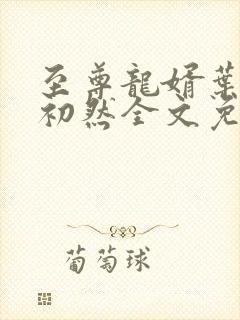 至尊龍婿葉
初然全文免
葡萄球